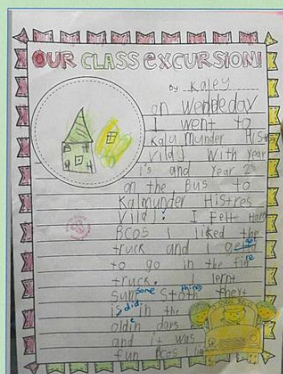 OUR CLASS EXCURSION!
By Kaley
on Wendeday
I went to
Kalu munder Hist
Vild) With Year
1's and Year 2s
on the Bus to
Kalmunder Histres
Vild). I Felt
Bcos I liked the
truck and I got
to go in the fire
truck. I lernt
some things
did in the
olden days
and it was
fun Bcos